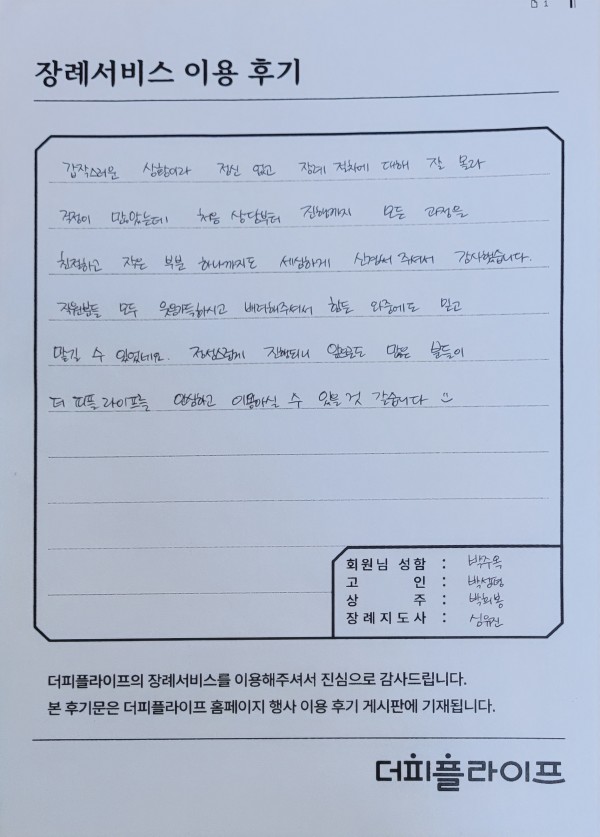 장례서비스 이용 후기
갑작스러운 상황이라 정신 없고 장례 절차에 대해 잘 몰라
걱정이 많았는데 처음 상담부터 진행까지 모든 과정을
친절하고 작은 부분 하나까지도 세심하게 신경써 주셔서 감사했습니다.
직원분들 모두 웃음가득하시고 배려해주셔서 힘든 와중에도 믿고
맡길 수 있었네요. 정성스럽게 진행되니 앞으로도 많은 분들이
더 피플라이프를 안심하고 이용하실 수 있을 것 같습니다
회원님 성함 : 박주옥
고 인 :
상 주 : 박희봉
장례지도사 : 심유진
더피플라이프의 장례서비스를 이용해주셔서 진심으로 감사드립니다.
본 후기문은 더피플라이프 홈페이지 행사 이용 후기 게시판에 기재됩니다.
더피플라이프